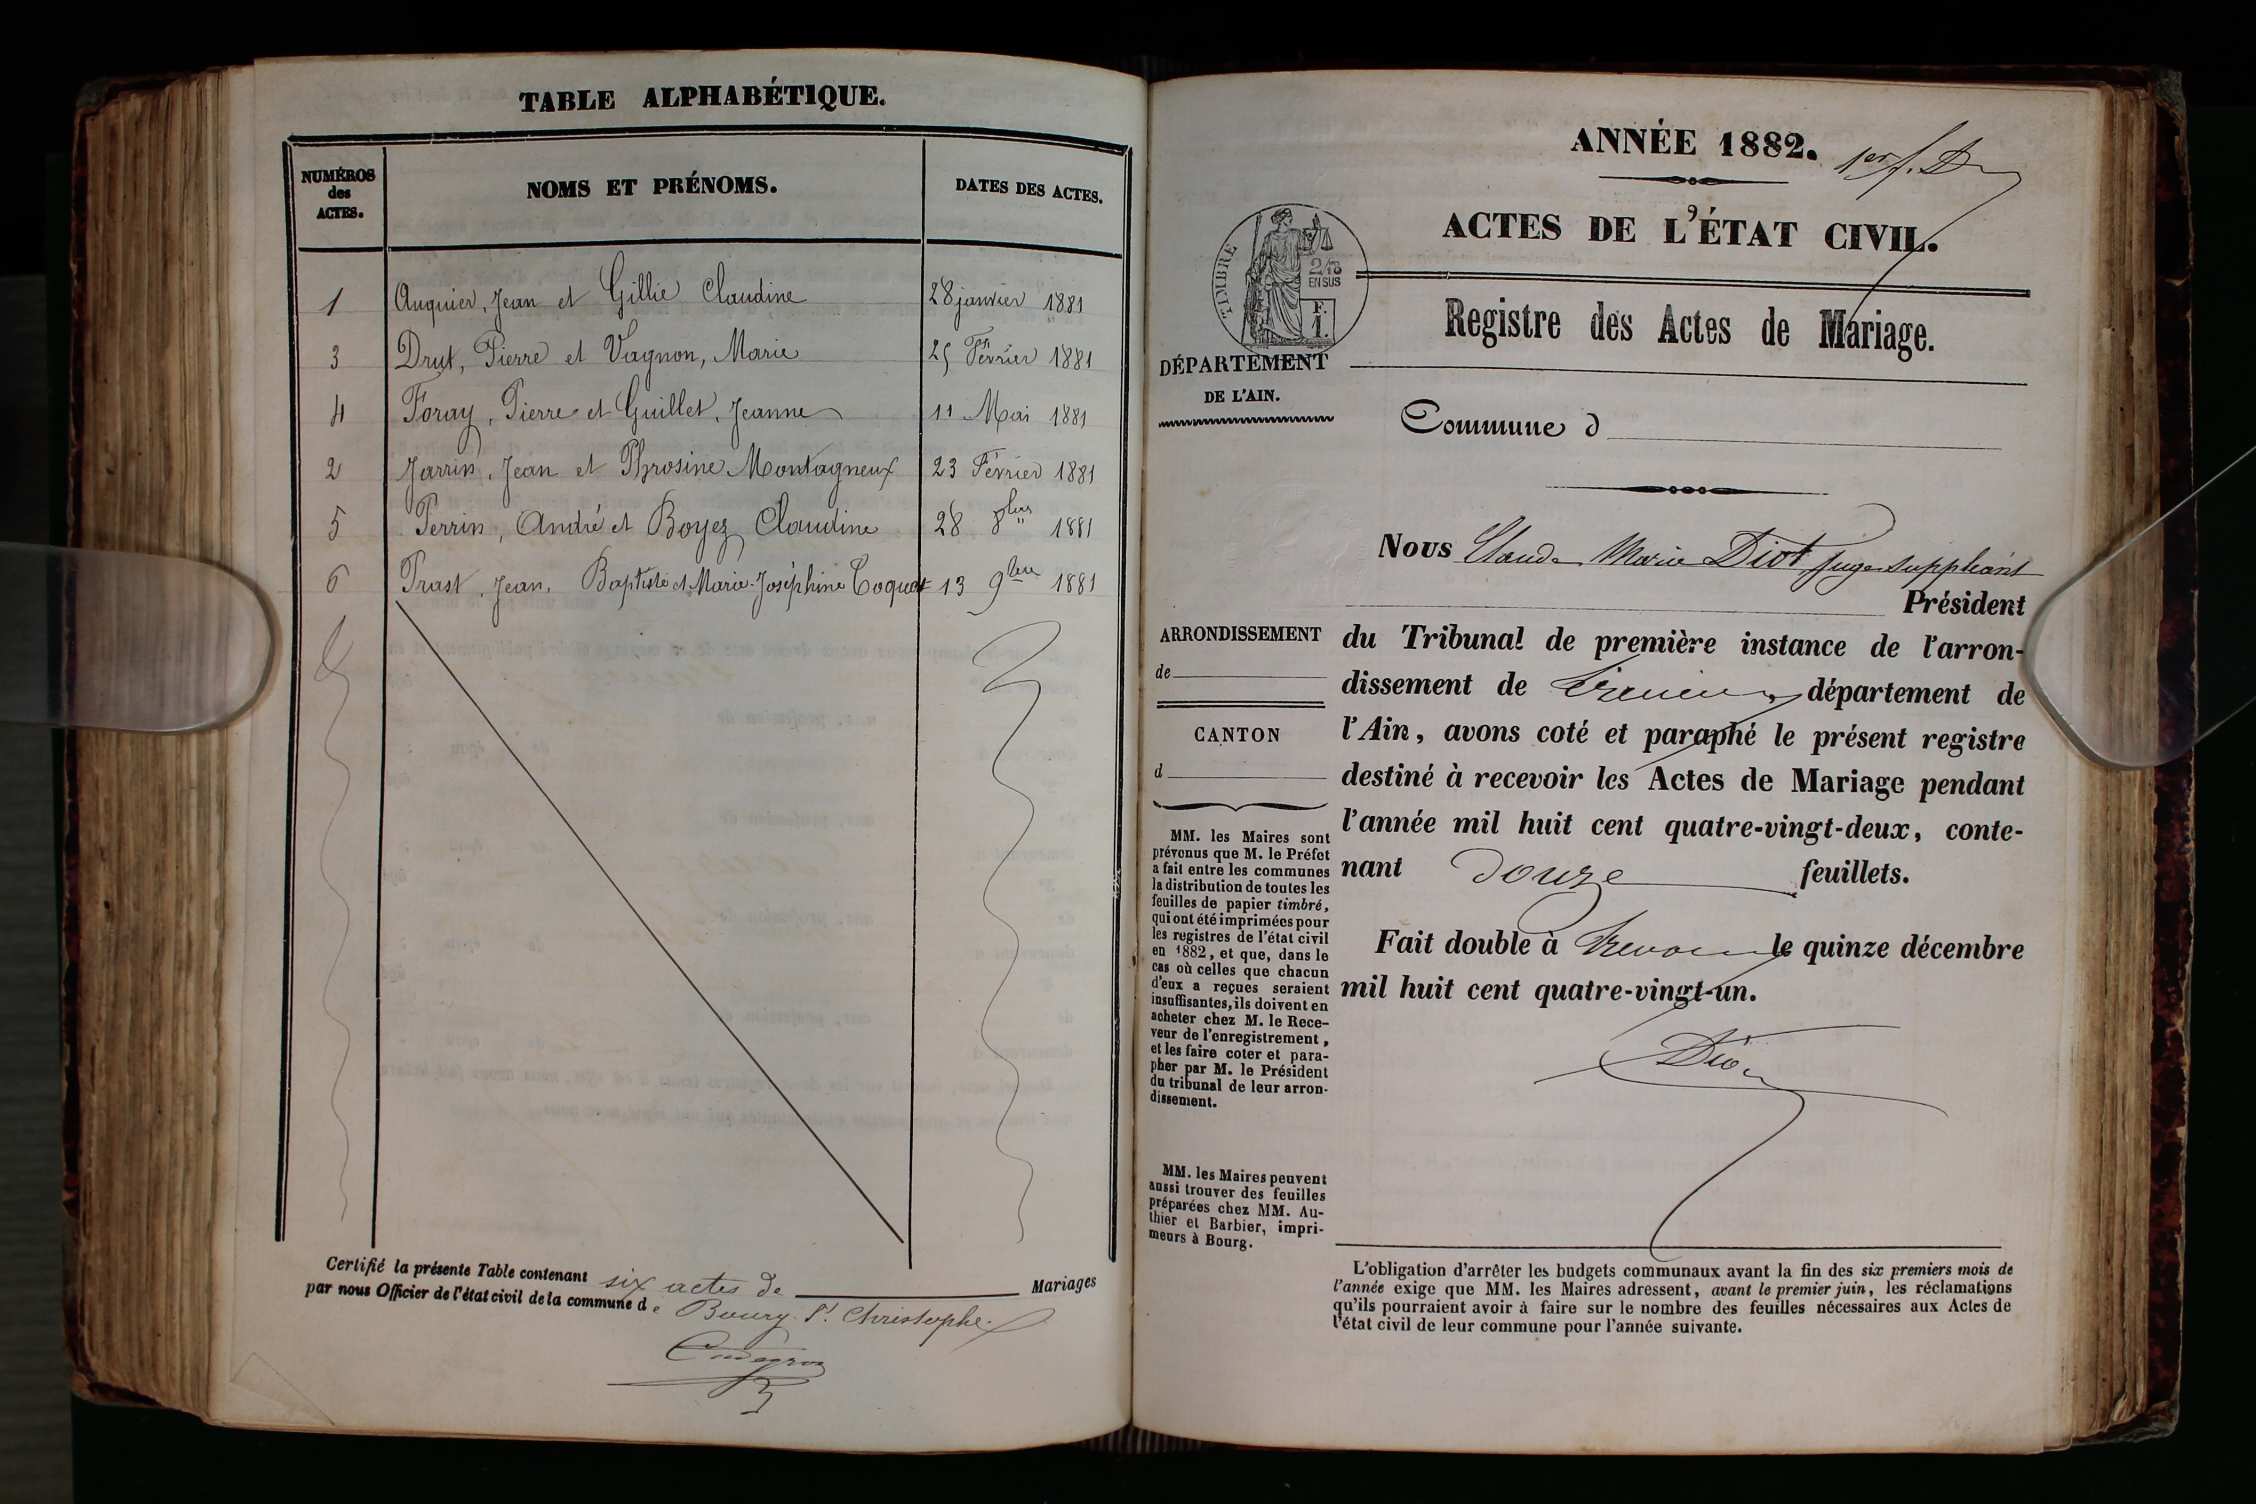 TABLE ALPHABÉTIQUE.
NUMÉROS
des
ACTES.
NOMS ET PRÉNOMS.
DATES DES ACTES.
1 Auquier, Jean et Gillie Claudine 28 janvier 1881
3 Drut, Pierre et Vagnon, Marie 25 Février 1881
4 Foray, Pierre et Guillet, Jeanne 11 Mai 1881
2 Jarrin, Jean et Phrosine Montagneux 23 Février 1881
5 Perrin, André et Boyez Claudine 28 8bre 1881
6 Prast, Jean, Baptiste et Marie-Joséphine Coquet 13 9bre 1881
Certifié la présente Table contenant six actes de Mariages
par nous Officier de l'état civil de la commune de Bourg St Christophe.
ANNÉE 1882.
1er f.
ACTES DE L'ÉTAT CIVIL.
TIMBRE
2/10
EN SUS
F.
1.
Registre des Actes de Mariage.
DÉPARTEMENT
DE L'AIN.
Commune d
Nous Claude Marie Diot, juge suppléant
Président
ARRONDISSEMENT
de
CANTON
d
du Tribunal de première instance de l'arron-
dissement de Trévoux, département de
l'Ain, avons coté et paraphé le présent registre
destiné à recevoir les Actes de Mariage pendant
l'année mil huit cent quatre-vingt-deux, conte-
nant douze feuillets.
Fait double à Trévoux le quinze décembre
mil huit cent quatre-vingt-un.
Diot
MM. les Maires sont
prévenus que M. le Préfet
a fait entre les communes
la distribution de toutes les
feuilles de papier timbré,
qui ont été imprimées pour
les registres de l'état civil
en 1882, et que, dans le
cas où celles que chacun
d'eux a reçues seraient
insuffisantes, ils doivent en
acheter chez M. le Rece-
veur de l'enregistrement,
et les faire coter et para-
pher par M. le Président
du tribunal de leur arron-
dissement.
MM. les Maires peuvent
aussi trouver des feuilles
préparées chez MM. Au-
thier et Barbier, impri-
meurs à Bourg.
L'obligation d'arrêter les budgets communaux avant la fin des six premiers mois de
l'année exige que MM. les Maires adressent, avant le premier juin, les réclamations
qu'ils pourraient avoir à faire sur le nombre des feuilles nécessaires aux Actes de
l'état civil de leur commune pour l'année suivante.